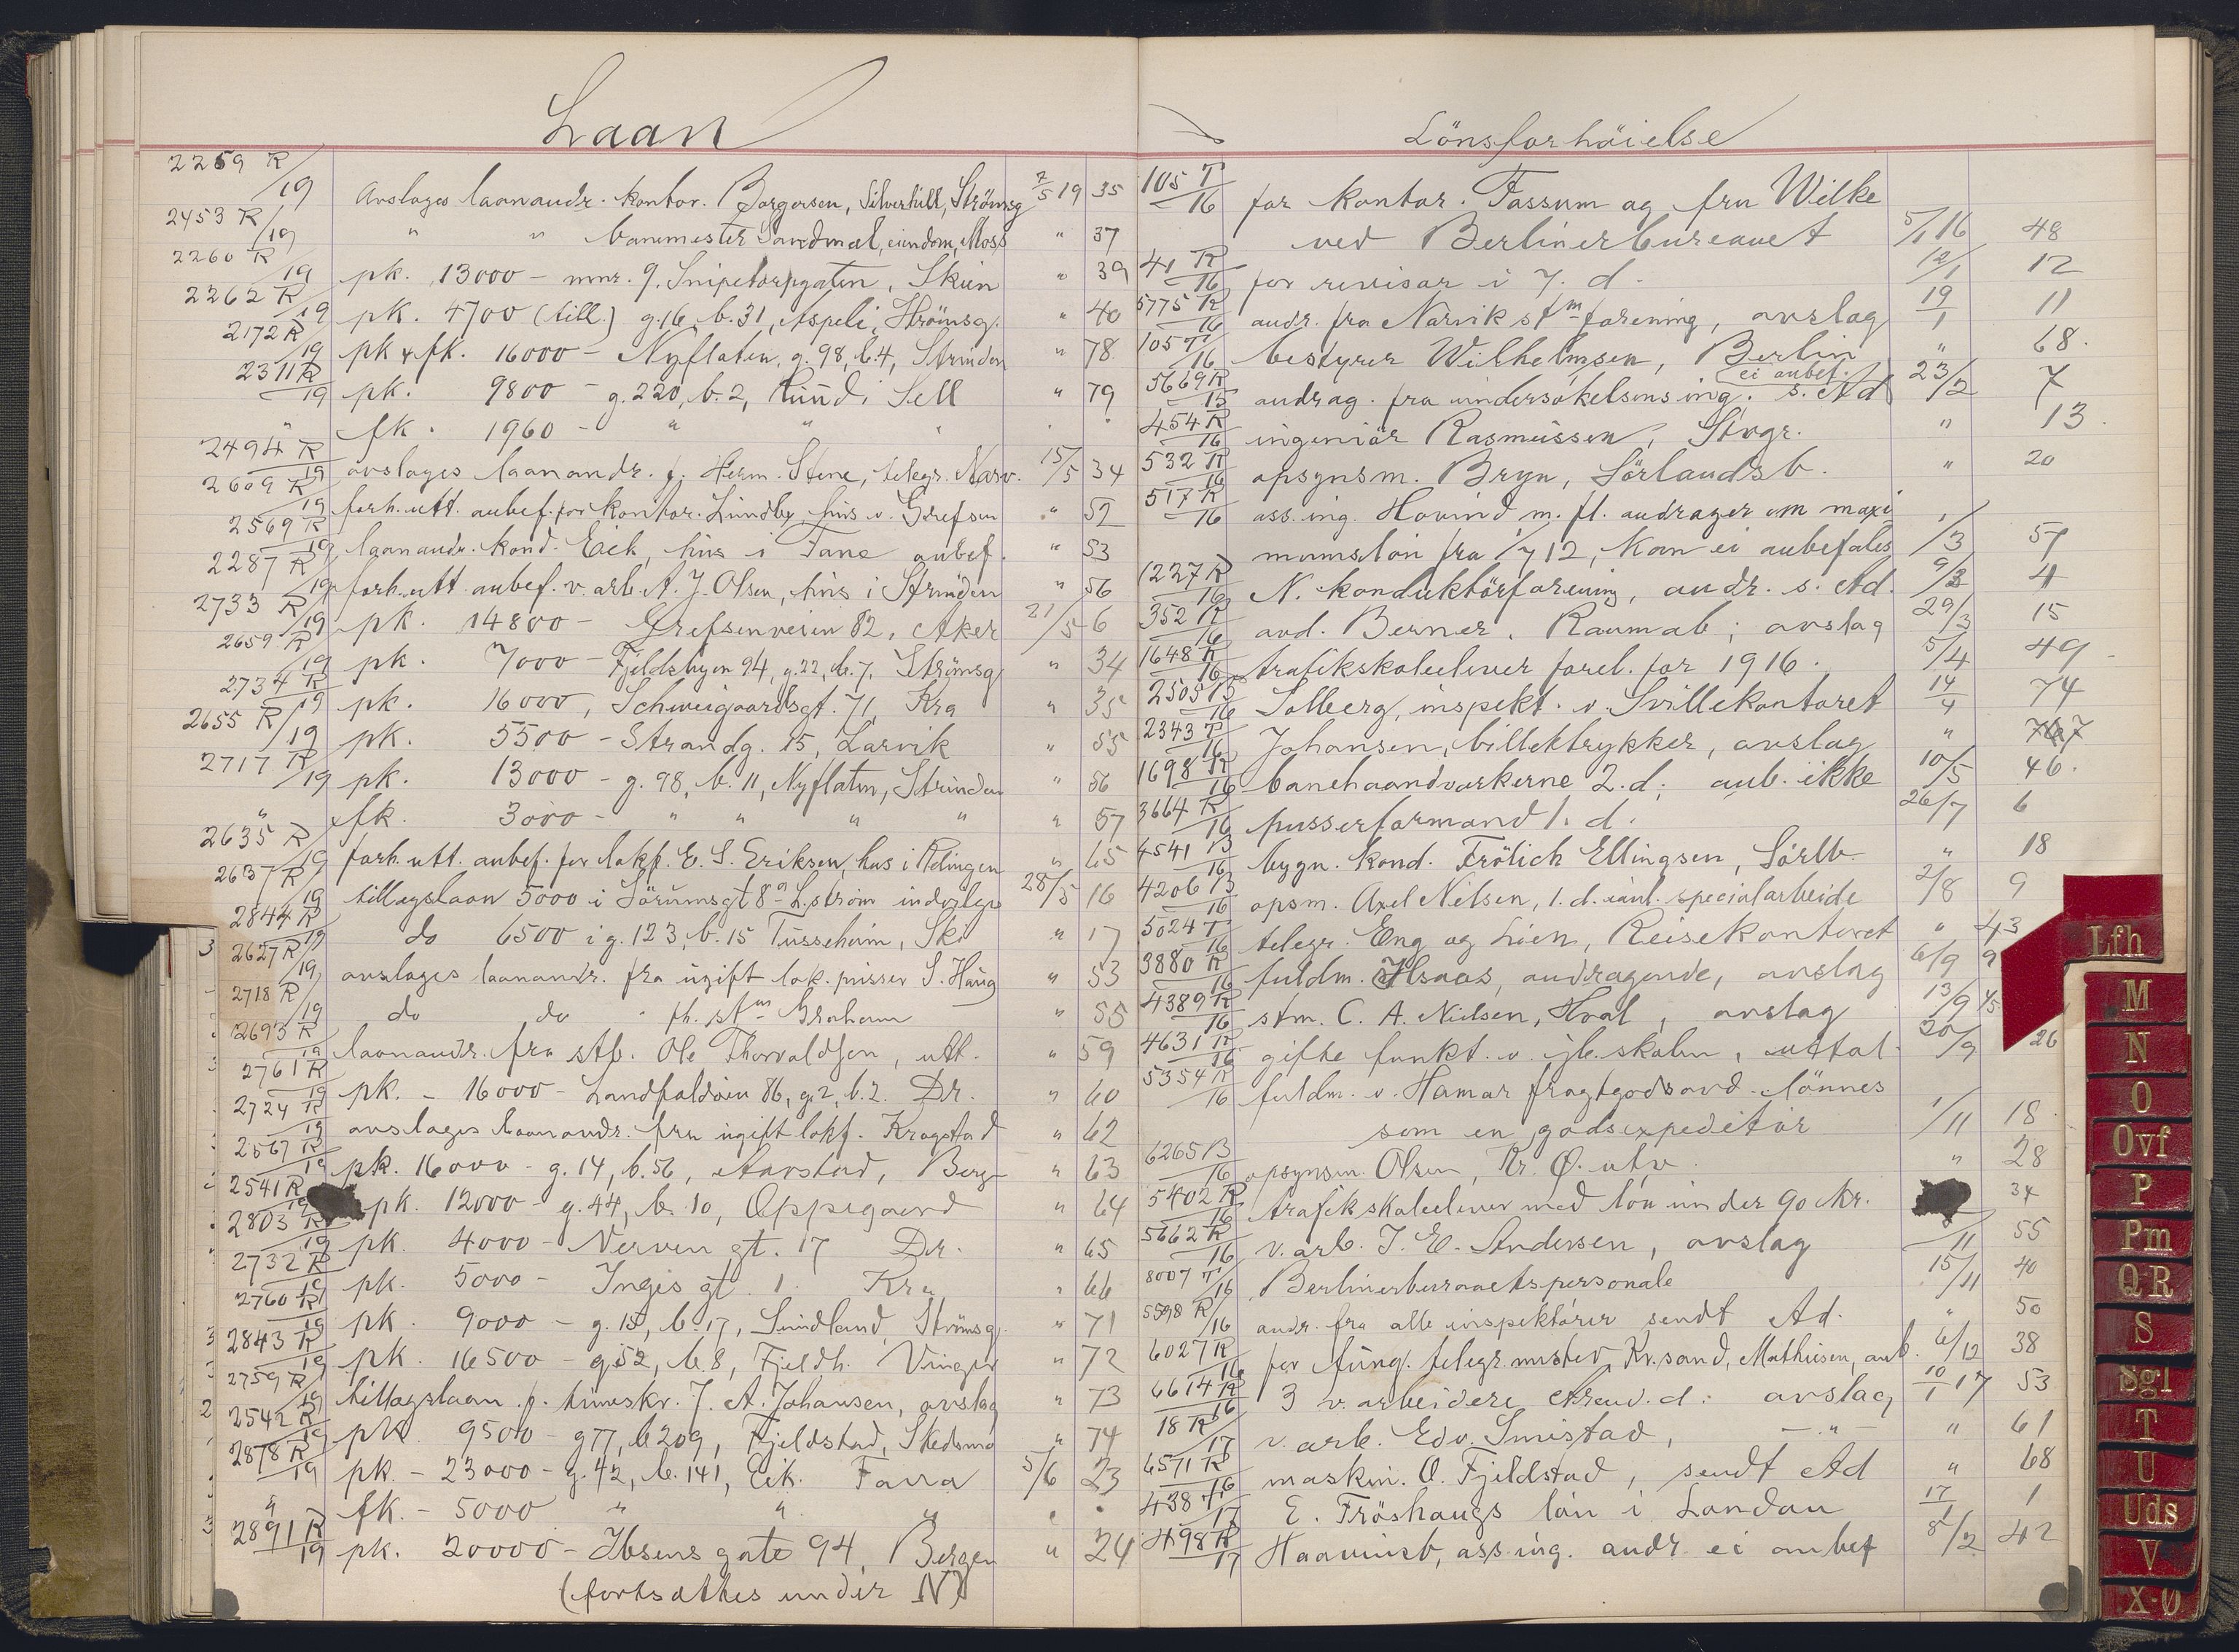 Laan
2259 R/19 Avslages laanandr. kontor. Borgersen, Silverhill, Strömsg 7/5 19 35
2453 R/19 " " banemester Sandmæl, eiendom, Moss " 37
2260 R/19 pk. 13000 - mnr. 9. Snipetorpgaten, Skien " 39
2262 R/19 pk. 4700 (till.) g.16, b.31, Aspeli, Strömsg. " 40
2172 R/19 pk & fk. 16000 - Nyflaten, g. 98, b.4, Strinden " 78
2311 R/19 pk. 9800 - g. 220, b. 2, Lund i Sell " 79
" fk. 1960 - " " "
2494 R/19 avslages laanandr. f. Herm. Stene, telegr. Narv. 15/5 34
2609 R/19 forh. utt. anbef. for kontor. Lindby, hus v. Grefsen " 52
2569 R/19 laanandr. kond. Eik, hus i Fane anbef. " 53
2287 R/19 forh. utt. anbef. v. arb. A. J. Olsen, hus i Strinden " 56
2733 R/19 pk. 14800 - Grefsenveien 82, Aker 21/5 6
2659 R/19 pk. 7000 - Fjeldsbyen 94, g.22, b.7, Strömsg " 34
2734 R/19 pk. 16000, Schweigaardsgt. 71, Kra " 35
2655 R/19 pk. 5500 - Strandg. 15, Larvik " 55
2717 R/19 pk. 13000 - g. 98, b. 11, Nyflaten, Strinden " 56
" fk. 3000 - " " " " " 57
2635 R/19 forh. utt. anbef. for lokf. E. S. Eriksen, hus i " 65
2637 R/19 tillægslaan 5000 i Sörumsgt 8a L.ström indvilges 28/5 16
2844 R/19 do 6500 i g. 123, b. 15 Tusseheim, Ski " 17
2627 R/19 avslages laanandr. fra ugift lok. pusser S. Haug " 53
2718 R/19 do do fh. stm Graham " 55
2693 R/19 laanandr. fra stb. Ole Thorvaldsen, utt. " 59
2761 R/19 pk. - 16000 - Landfaldöien 86, g.2, b.2. Dr. " 60
2724 R/19 avslages laanandr. fra ugift lokf. Kragstad " 62
2567 R/19 pk. 16000 - g. 14, b. 56, Aarstad, Berg- " 63
2541 R/19 pk. 12000 - g. 44, b. 10, Oppegaard " 64
2803 R/19 pk. 4000 - Nerven gt. 17 Dr. " 65
2732 R/19 pk. 5000 - Inges gt. 1. Kra " 66
2760 R/19 pk. 9000 - g. 15, b. 17, Sundland, Strömsg. " 71
2843 R/19 pk. 16500 - g 52, b. 8, Fjeldh. Vinger " 72
2759 R/19 tillægslaan f. timeskr. J. A. Johansen, avslag " 73
2542 R/19 pk. 9500 - g 77, b 209, Fjeldstad, Skedsmo " 74
2878 R/19 pk. - 23000 - g. 42, b. 141, Eik. Fana 5/6 23
" fk - 5000 " " "
2891 R/19 pk. 20000 - Ibsens gate 94, Bergen " 24
(fortsættes under N)
Lönsforhöielse
105 T/16 for kontor. Fassum og fru Wilke
ved Berlinerbureauet 5/1 16 48
41 R/16 for revisor i 7. d. 12/1 12
5775 R/16 andr. fra Narvik stm-forening, avslag 19/1 11
105 T/16 bestyrer Wilhelmsen, Berlin " 68.
5669 R/15 andrag. fra undersökelsens ing. s. Ad ei anbef. 23/2 7
454 R/16 ingeniör Rasmussen, Stvgr. " 13.
532 R/16 opsynsm. Bryn, Sörlandsb. " 20
517 R/16 ass. ing. Hovind m. fl. andrager om maxi
mumslön fra 1/7 12, kan ei anbefales 1/3 57
1227 R/16 N. konduktörforening, andr. s. Ad. 9/3 4
352 R/16 avd. Berner, Raumab; avslag 29/3 15
1648 R/16 trafikskoleelever forel. for 1916. 5/4 49
2505 B/16 Solberg, inspekt. v. Svillekontoret 14/4 74
2343 T/16 Johansen, billettrykker, avslag "
1698 R/16 banehaandverkerne 2. d; anb. ikke 10/5 46.
3664 R/16 pusserformand 1. d. 26/7 6
4541 B/16 bygn. kond. Frölich Ellingsen, Sörlb. " 18
4206 B/16 opsm. Axel Nilsen, 1. d. specialarbeide 2/8 9
5024 T/16 telegr. Eng og Lien, Reisekontoret " 43
3880 R/16 fuldm. Aasaas, andragende, avslag 6/9 9
4389 R/16 stm. C. A. Nielsen, Hval, avslag 13/9 45
4631 R/16 gifte funkt. v. jb. skolen, uttal. 20/9 26
5354 R/16 fuldm. v. Hamar fragtgodsavd. lönnes
som en godsexpeditör 1/11 18
6265 B/16 opsynsm. Olsen, Kr. Ø. utv. " 28
5402 R/16 trafikskoleelever med lön under 90 kr. 34
5662 R/16 v. arb. J. E. Andersen, avslag 8/11 55
8007 T/16 Berlinerbureauets personale 15/11 40
5598 R/16 andr. fra alle inspektörer sendt Ad. " 50
6027 R/16 for fung. telegr. mester, Kr.sand, Mathiesen, anb. 6/12 38
6614 R/16 3 v. arbeidere Arend. d: avslag 10/1 17 53
18 R/17 v. arb. Edv. Smistad, - " - " 61
6571 R/16 maskin. O. Fjeldstad, sendt Ad " 68
438 /17 E. Fröshaugs lön i London 17/1 1
498 R/17 ass. ing. andr. ei anbef 8/2 42
Lfh
M
N
O
Ovf
P
Pm
QR
S
Sgl
T
U
Uds
V
X-Ø